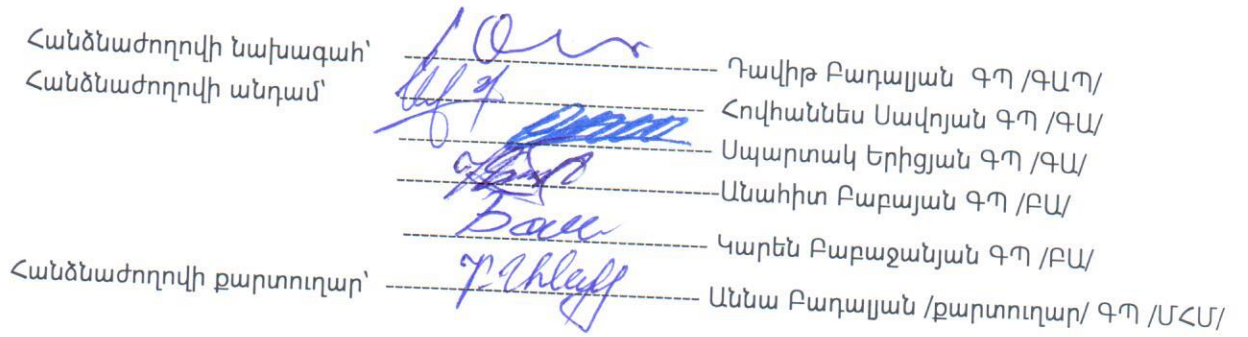 Հանձնաժողովի նախագահ՝ Դավիթ Բադալյան ԳՊ /ԳԱՊ/
Հանձնաժողովի անդամ՝ Հովհաննես Սավոյան ԳՊ /ԳԱ/
Սպարտակ Երիցյան ԳՊ /ԳԱ/
Անահիտ Բաբայան ԳՊ /ԲԱ/
Կարեն Բաբաջանյան ԳՊ /ԲԱ/
Հանձնաժողովի քարտուղար՝ Աննա Բադալյան /քարտուղար/ ԳՊ /ՄՀՄ/